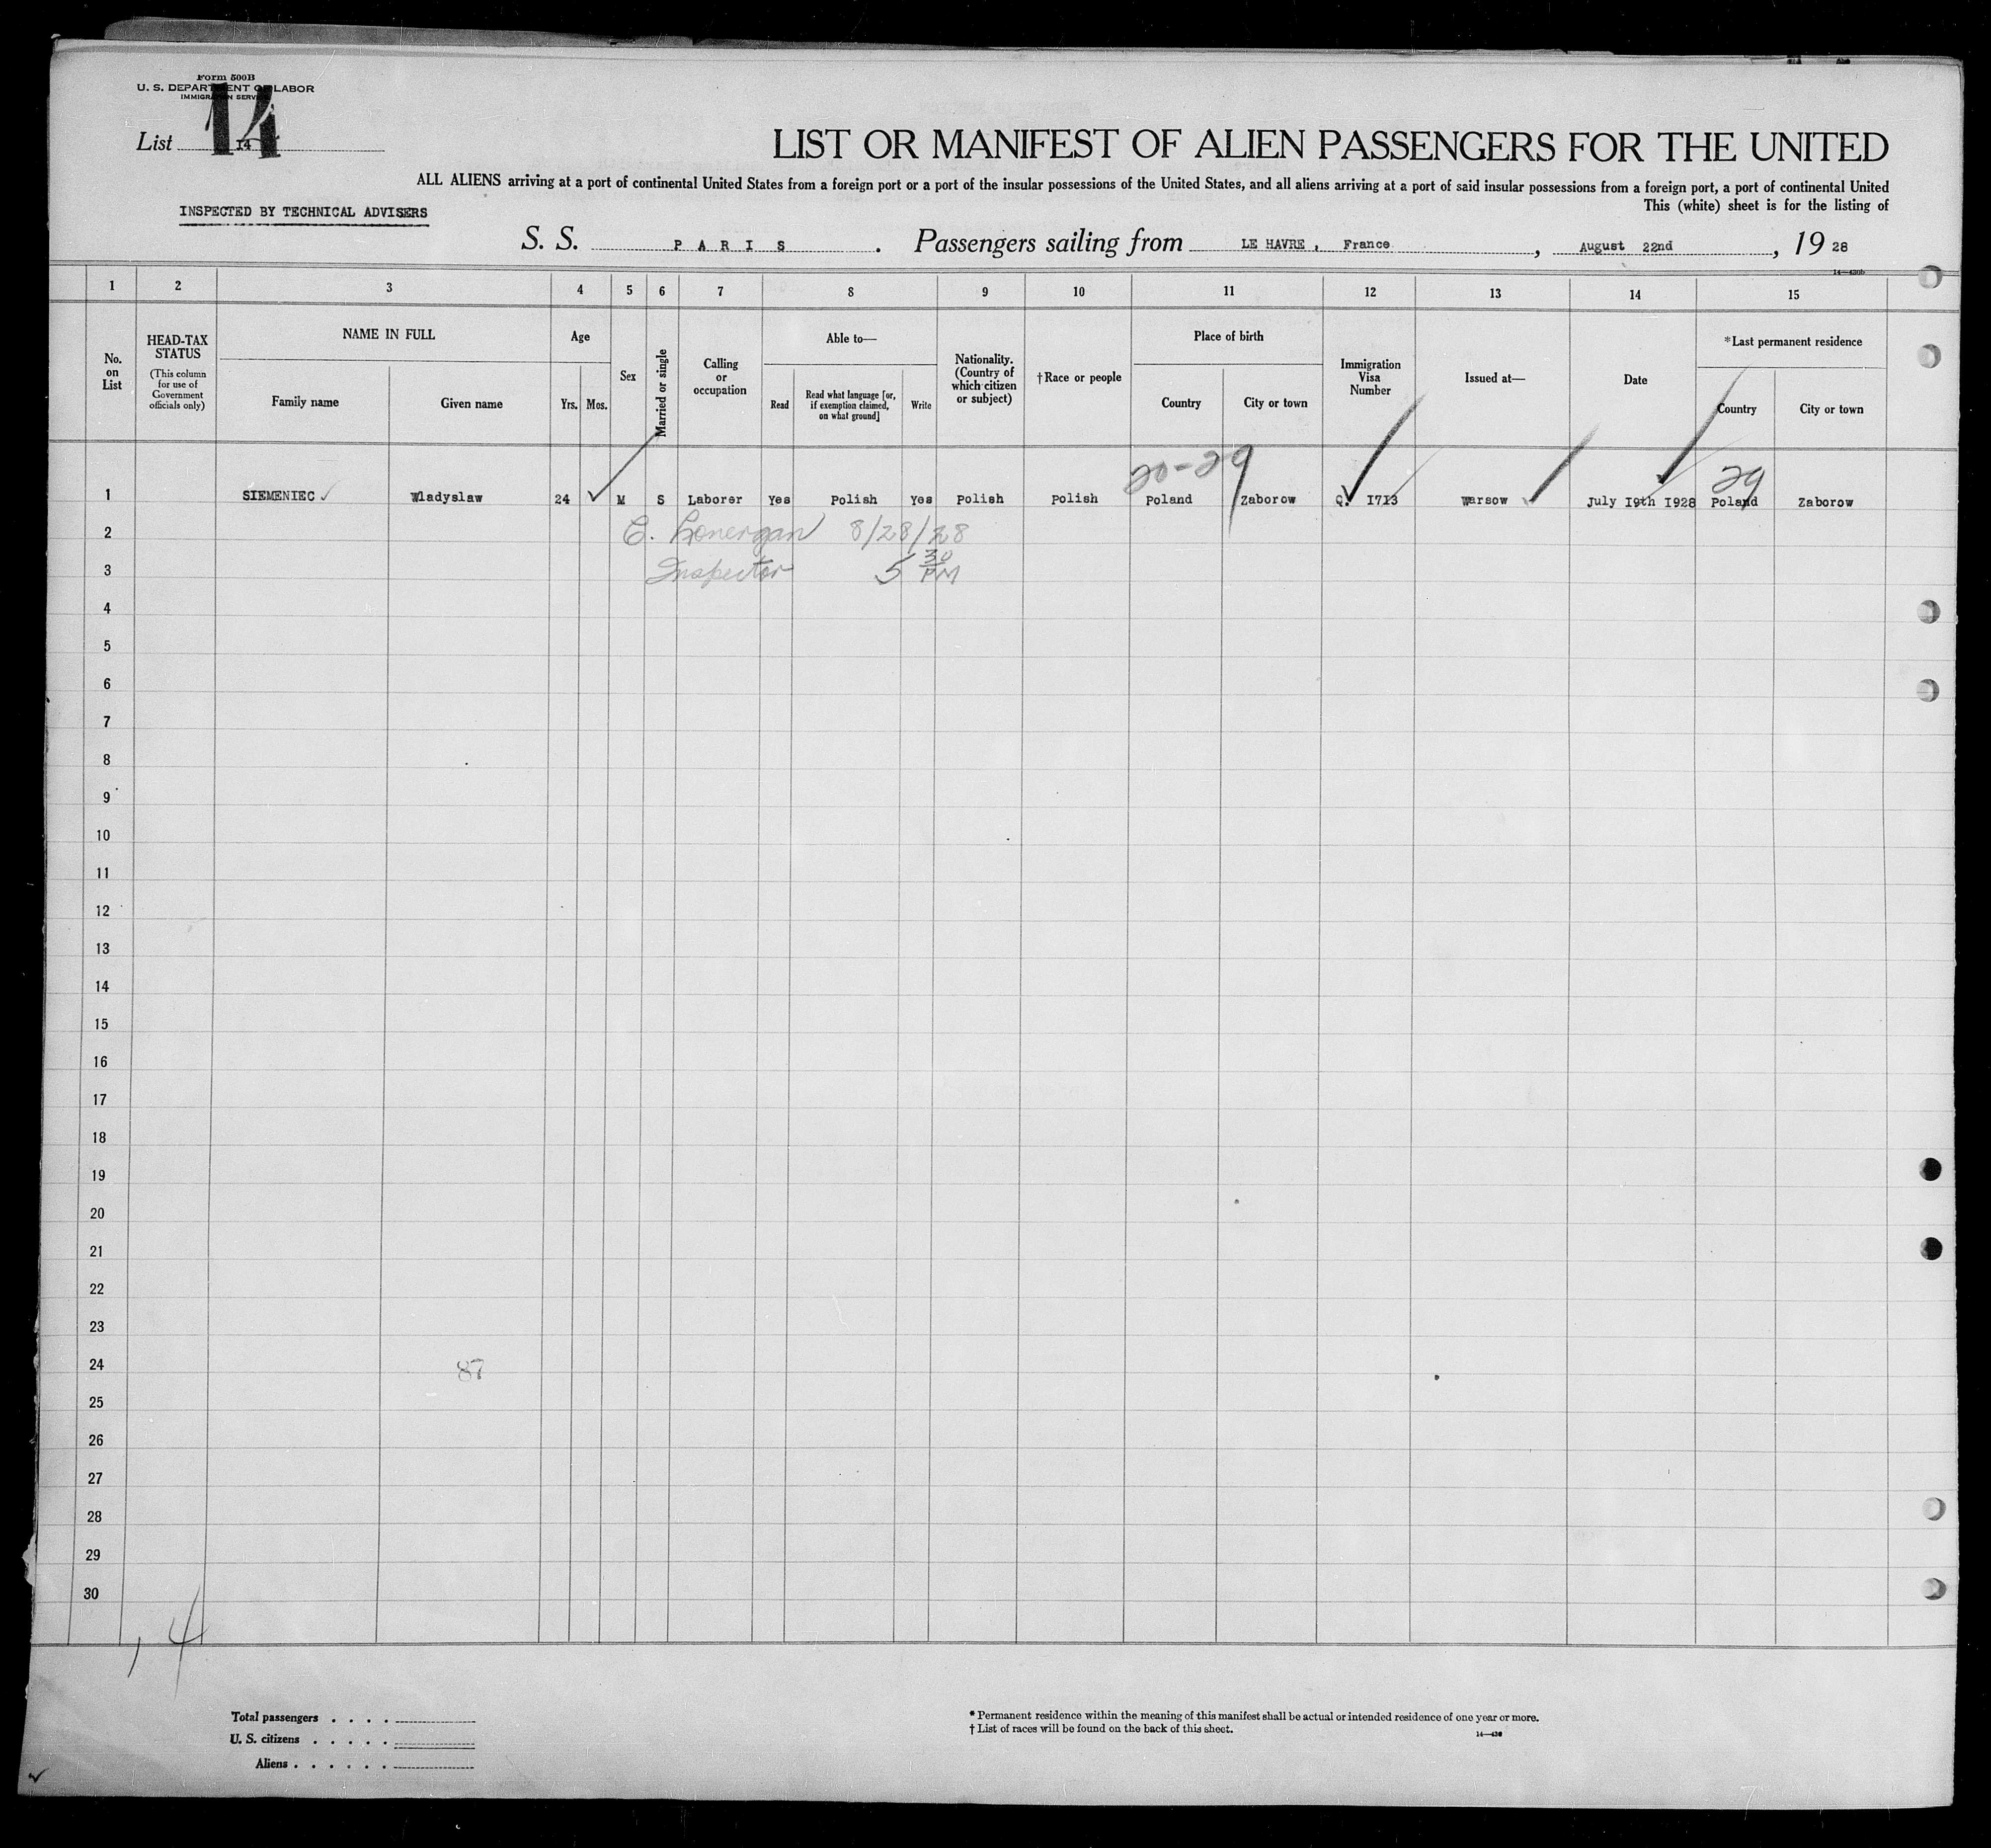 Form 500B
U. S. DEPARTMENT OF LABOR
IMMIGRATION SERVICE
List 14
14
LIST OR MANIFEST OF ALIEN PASSENGERS FOR THE UNITED
ALL ALIENS arriving at a port of continental United States from a foreign port or a port of the insular possessions of the United States, and all aliens arriving at a port of said insular possessions from a foreign port, a port of continental United
This (white) sheet is for the listing of
INSPECTED BY TECHNICAL ADVISERS
S. S. PARIS . Passengers sailing from LE HAVRE , France , August 22nd , 19 28
14—430b
1 2 3 4 5 6 7 8 9 10 11 12 13 14 15
No. on List
HEAD-TAX STATUS
(This column for use of Government officials only)
NAME IN FULL
Family name
Given name
Age
Yrs.
Mos.
Sex
Married or single
Calling or occupation
Able to—
Read
Read what language [or, if exemption claimed, on what ground]
Write
Nationality. (Country of which citizen or subject)
†Race or people
Place of birth
Country
City or town
Immigration Visa Number
Issued at—
Date
*Last permanent residence
Country
City or town
20-29 29
1 SIEMENIEC ✓ Wladyslaw 24 ✓ M S Laborer Yes Polish Yes Polish Polish Poland Zaborow Q. I7I3 Warsow July I9th I928 Poland Zaborow
2 C. Lonergan 8/28/28
3 Inspector 5 30 PM
4
5
6
7
8
9
10
11
12
13
14
15
16
17
18
19
20
21
22
23
24 87
25
26
27
28
29
30
14
Total passengers . . . .
U. S. citizens . . . . .
Aliens . . . . . .
* Permanent residence within the meaning of this manifest shall be actual or intended residence of one year or more.
† List of races will be found on the back of this sheet.
14—430